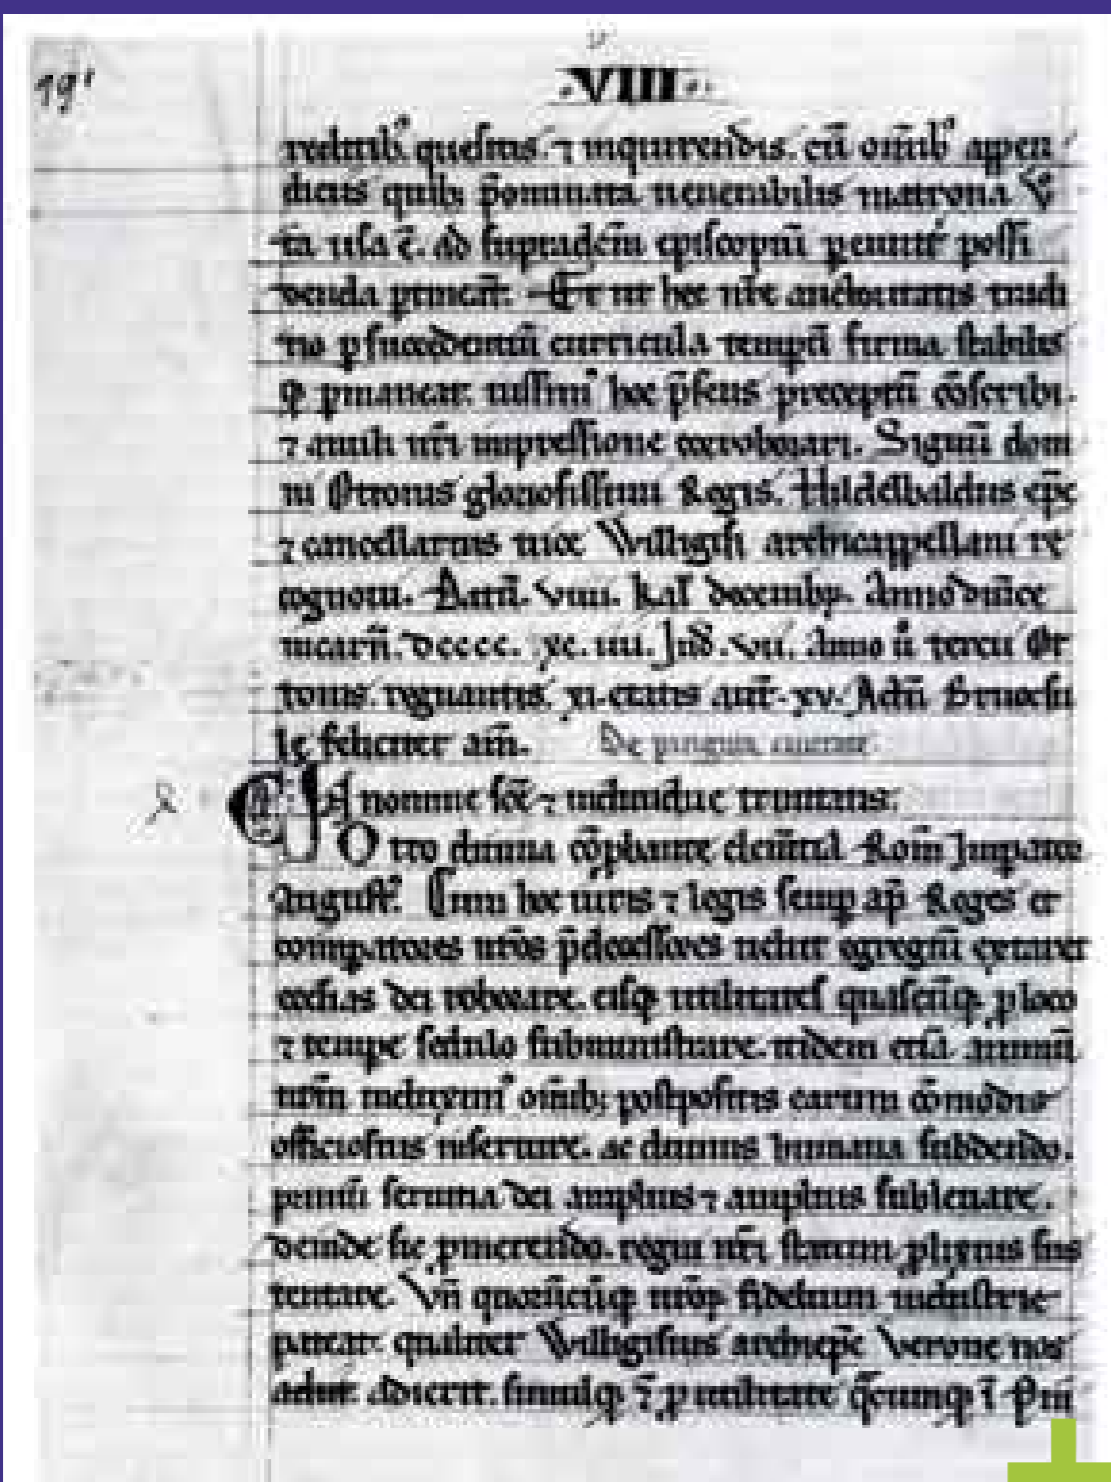 19'
·VIII·
reditib' quesitis ⁊ inquirendis. cū om̄ib' appen
diciis quib; p̄nominata uenerabilis matrona
ta uisa ē. ad supradc̄m episcopiū possi
denda Et ut hec nr̄e auctoritatis tradi
tio p succedentiū curricula tempū firma stabilis
q; pmaneat. iussim' hoc p̄sens preceptū cōscribi.
⁊ anuli nr̄i impressione corroborari. Signū dom
ni Ottonis gloriosissimi Regis. Hildelbaldus ep̄c
⁊ cancellarius uice Willigisi archicappellani re
cognoui. Datū. viiii. kal' decembr̄. Anno dn̄ice
incarn̄. dcccc. xc. iiii. Ind̄. vii. Anno ū tercii Ot
tonis regnantis. xi. etatis aut̄. xv. Actū Bruochsi
le feliciter am̄. De pinguia
In nomine sc̄e ⁊ indiuidue trinitatis.
Otto diuina clem̄tia Rom̄ Imperator
August'. Cum hoc iuris ⁊ legis semp ap̄ Reges et
nr̄os p̄decessores uelut egregiū
ecclias dei roborare. eisq; utilitates quascūq; p loco
⁊ tempe sedulo subministrare. itidem etiā animū
nr̄m indu​xim' om̄ib; postpositis earum cōmodis
officiosius inseruire. ac diuinis humana subdendo.
primū seruitia dei amplius ⁊ amplius subleuare.
deinde sic pmerendo. regni nr̄i statum plixius sus
tentare. Vn̄ quorūcūq; nr̄oꝝ fidelium industrie
pateat. qualiter Willigisus archiep̄c Verone nos
adierit. simulq; ⁊ p utilitate